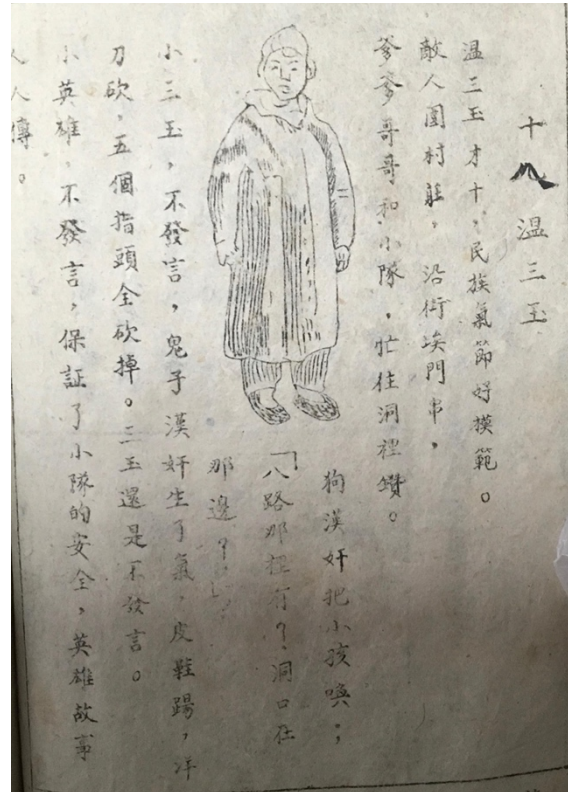 十八 温三玉
温三玉才十，民族氣節好模範。
敵人圍村莊，沿街埃門串，
爹爹哥哥和小隊，忙往洞裡鑽。
狗漢奸把小孩喚，
「八路那裡有？洞口在
那邊？」
小三玉，不發言，鬼子漢奸生了氣，皮鞋踢，洋
刀砍，五個指頭全砍掉。三玉還是不發言。
小英雄，不發言，保証了小隊的安全，英雄故事
人人傳。